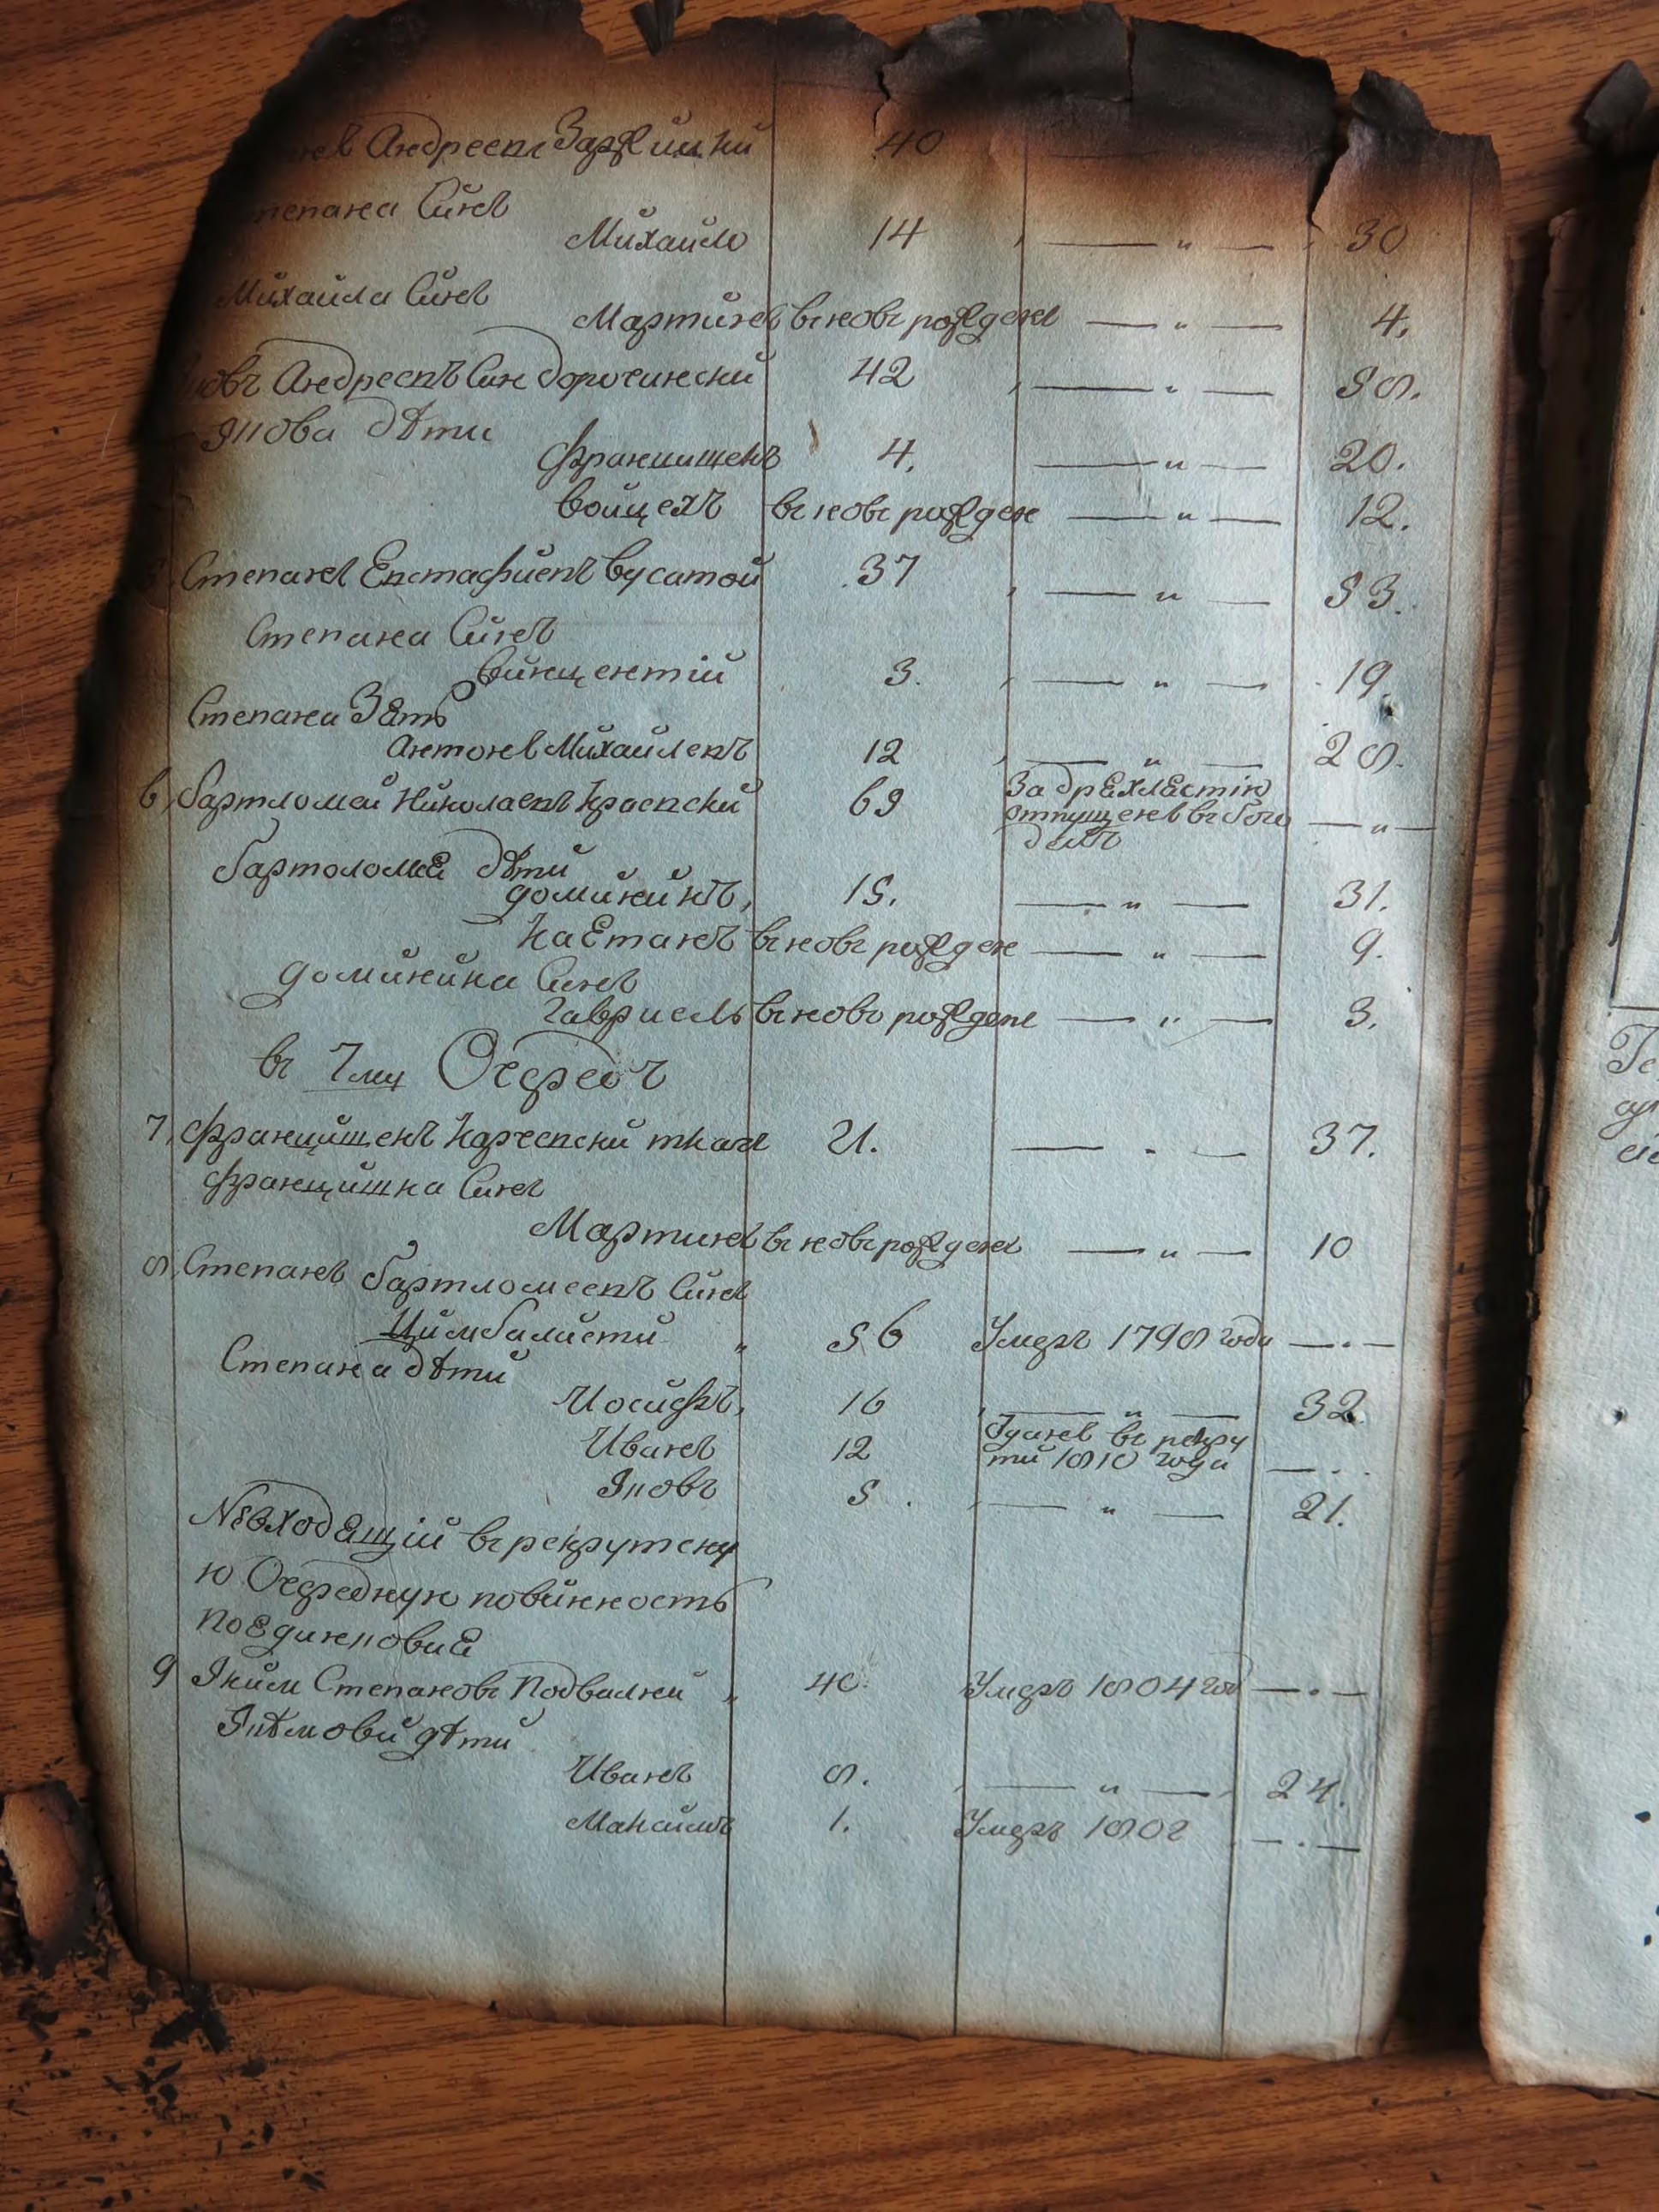 Андреевъ Заржицки 40
Степана Синъ
Михайло 14 — " — 30
Михаила Синъ
Мартинъ вновь рожденъ — " — 4.
Яковъ Андреевъ Синъ дорочински 42 — " — 58.
Якова дѣти
Францишекъ 4. — " — 20.
войцехъ вновь рожден — " — 12.
5 Степанъ Евстафиевъ вусатой 37 — " — 53.
Степана Синъ
винцентій 3. — " — 19.
Степана Зять
антонъ Михайлевъ 12 — " — 28.
6, бартломей Николаевъ Краевски 69 За дряхластию
отпущенъ въ бога — " —
делъ
бартоломея дѣти
доминикъ, 15. — " — 31.
Каетанъ вновь рожден — " — 9.
доминика Синъ
Гавриель вновь рожденъ — " — 3.
въ 7му Очередъ
7, францишекъ Карчевски ткачъ 21. — " — 37.
францишка Синъ
Мартинъ вновь рожденъ — " — 10
8, Степанъ бартломеевъ Синъ
Цимбалисти " 56 Умеръ 1798 года — " —
Степана дѣти
Иосифъ, 16 — " — 32.
Иванъ 12 Одданъ въ рекру
ти 1810 года — " —
Яковъ 5. — " — 21.
Невходящій въ рекрутску
ю Очередную повинность
поединковия
9 Якимъ Степановъ Подвални " 40 Умеръ 1804 год — " —
Якѣмови дѣти
Иванъ 8. — " — 24.
Максимъ 1. Умеръ 1802 — " —